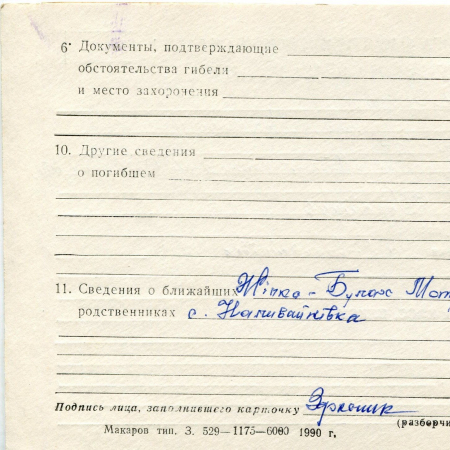 6· Документы, подтверждающие
обстоятельства гибели
и место захоронения
10. Другие сведения
о погибшем
11. Сведения о ближайших Жінка - Булах Мот
родственниках с. Наливайківка
Подпись лица, заполнившего карточку
(разборчи
Макаров тип. З. 529—1175—6000 1990 г.